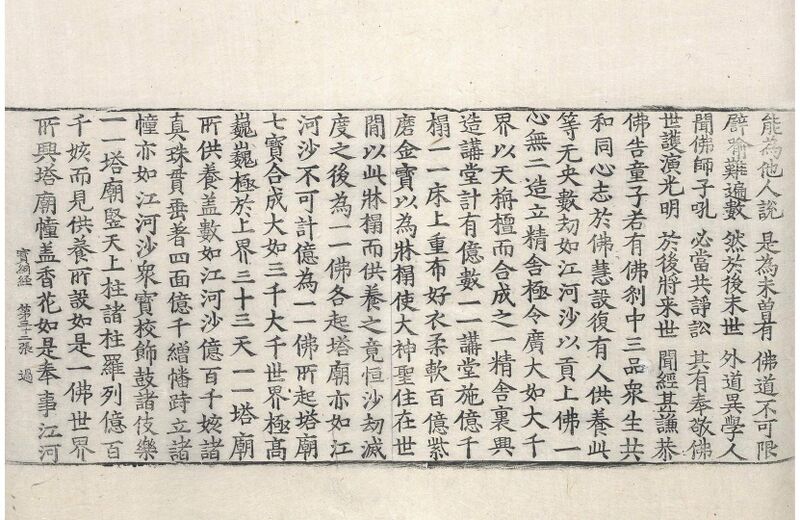 能為他人說　是為未曽有　佛道不可限
譬喻難遍數　然於後末世　外道異學人
聞佛師子吼　必當共諍訟　其有奉敬佛
世護演光明　於後將来世　聞經甚謙恭
佛告童子若有佛刹中三品衆生共
和同心志於佛慧設復有人供養此
等无央數劫如江河沙以貢上佛一
心無二造立精舍極令廣大如大千
界以天栴檀而合成之一精舍裏興
造講堂計有億數一一講堂施億千
榻一一床上重布好衣柔軟百億紫
磨金寶以為牀榻使大神聖住在世
間以此牀榻而供養之竟恒沙劫滅
度之後為一一佛各起塔廟亦如江
河沙不可計億為一一佛所起塔廟
七寶合成大如三千大千世界極高
巍巍極於上界三十三天一一塔廟
所供養盖數如江河沙億百千姟諸
真珠貫垂著四面億千繒幡跱立諸
幢亦如江河沙衆寶校飾鼓諸伎樂
一一塔廟竪天上柱諸柱羅列億百
千姟而見供養所設如是一佛世界
所興塔廟幢盖香花如是奉事江河
經　第三十二張　過